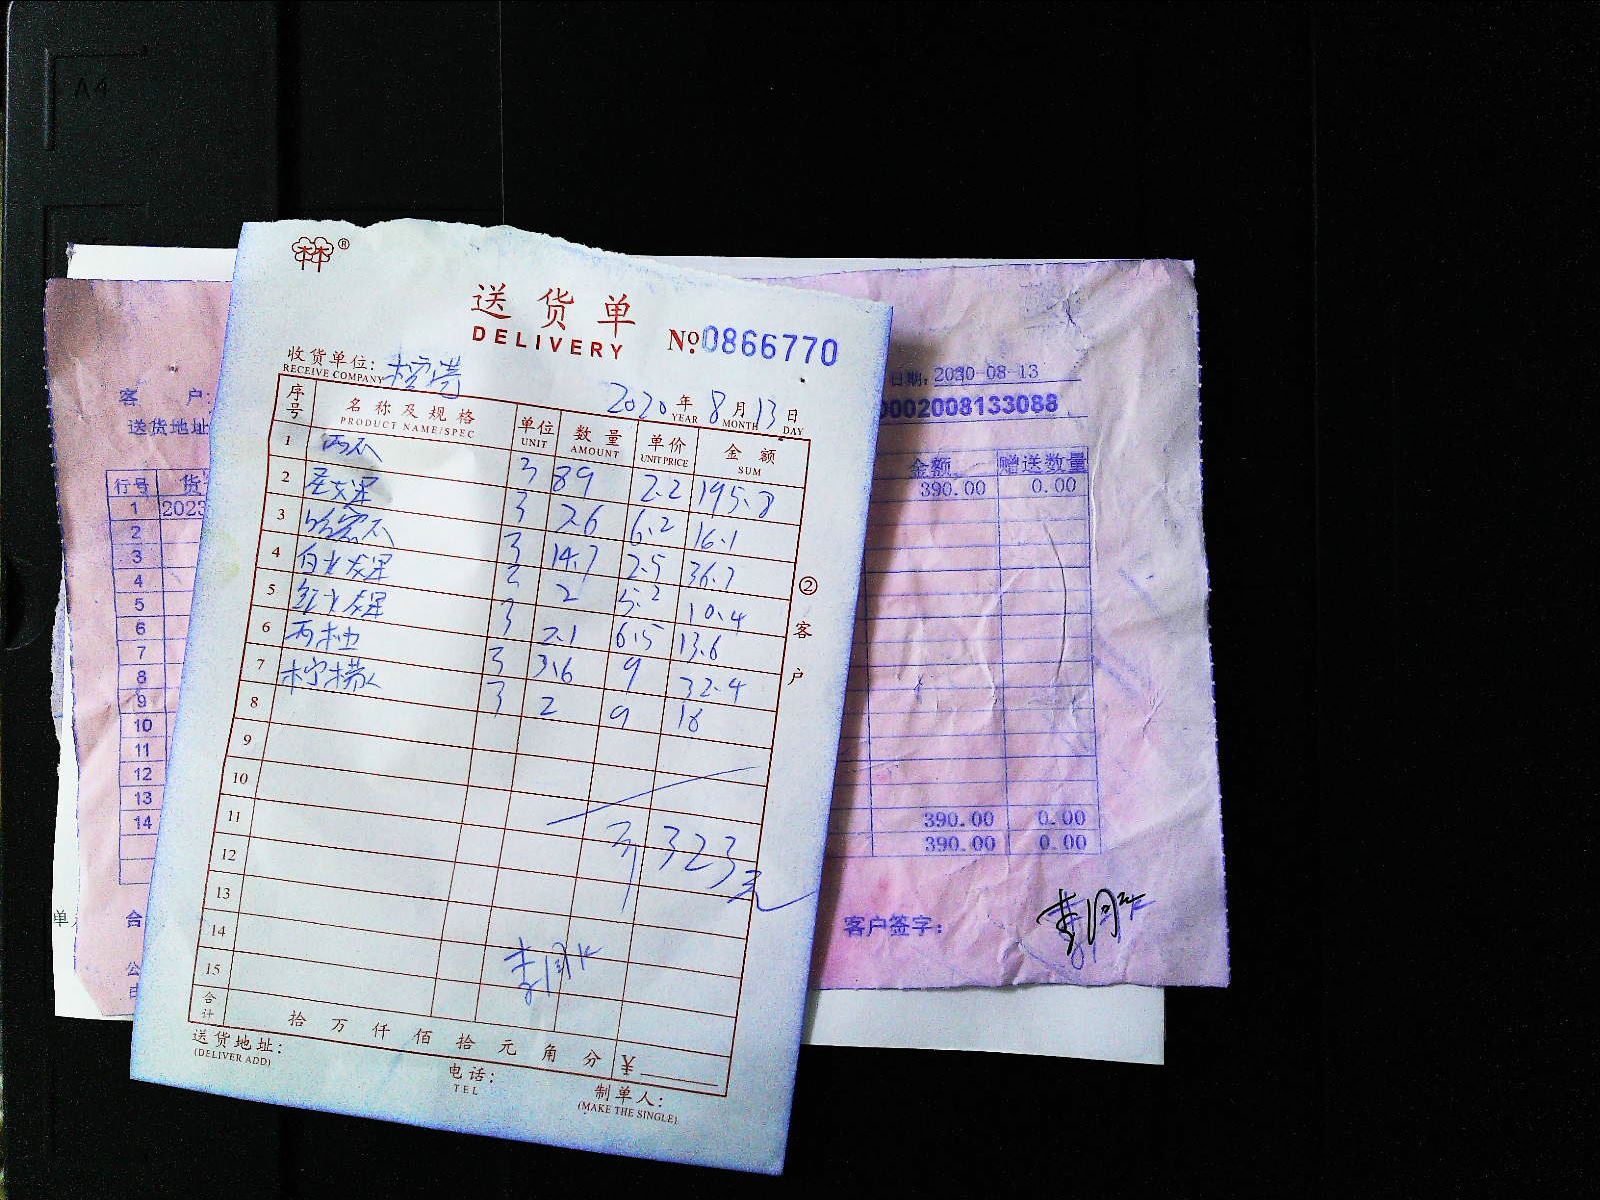 A4
®
送货单
DELIVERY
№0866770
收货单位:
RECEIVE COMPANY
2020年8月13日
YEAR MONTH DAY
序号 名称及规格 单位 数量 单价 金额
PRODUCT NAME/SPEC UNIT AMOUNT UNIT PRICE SUM
1 西瓜 89 2.2 195.8
2 2.6 6.2 16.1
3 哈密瓜 14.7 2.5 36.7
4 白火龙果 2 5.2 10.4
5 红火龙果 2.1 6.5 13.6
6 西柚 3.6 9 32.4
7 柠檬 2 9 18
8
9
10
11
12
13
14
15
323元
合计 拾 万 仟 佰 拾 元 角 分 ¥
送货地址:
(DELIVER ADD)
电话:
TEL
制单人:
(MAKE THE SINGLE)
②客户
客 户:
送货地址
行号 货
1 2023
2
3
4
5
6
7
8
9
10
11
12
13
14
合
单
日期: 2020-08-13
0002008133088
金额 赠送数量
390.00 0.00
390.00 0.00
390.00 0.00
客户签字: